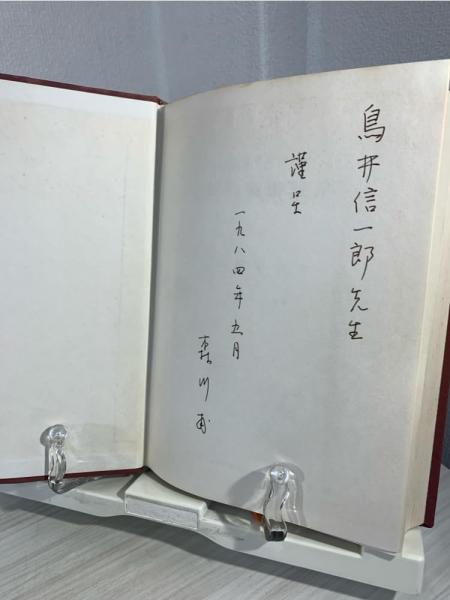 鳥井信一郎先生
謹呈
一九八四年五月
森川甫